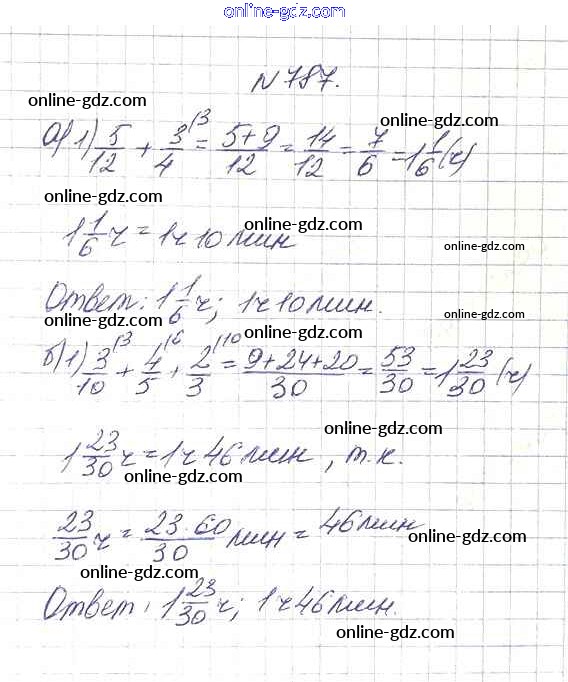 online-gdz.com
N 787.
online-gdz.com
online-gdz.com
а) 1) 5/12 + 3/4^(3 = (5+9)/12 = 14/12 = 7/6 = 1 1/6 (ч)
online-gdz.com
online-gdz.com
online-gdz.com
1 1/6 ч = 1ч 10 мин
online-gdz.com
Ответ: 1 1/6 ч; 1ч 10 мин.
online-gdz.com
online-gdz.com
online-gdz.com
б) 1) 3/10^(3 + 4/5^(6 + 2/3^(10 = (9+24+20)/30 = 53/30 = 1 23/30 (ч)
online-gdz.com
1 23/30 ч = 1ч 46 мин, т.к.
online-gdz.com
online-gdz.com
23/30 ч = (23·60)/30 мин = 46 мин
online-gdz.com
online-gdz.com
Ответ: 1 23/30 ч; 1ч 46 мин.
online-gdz.com